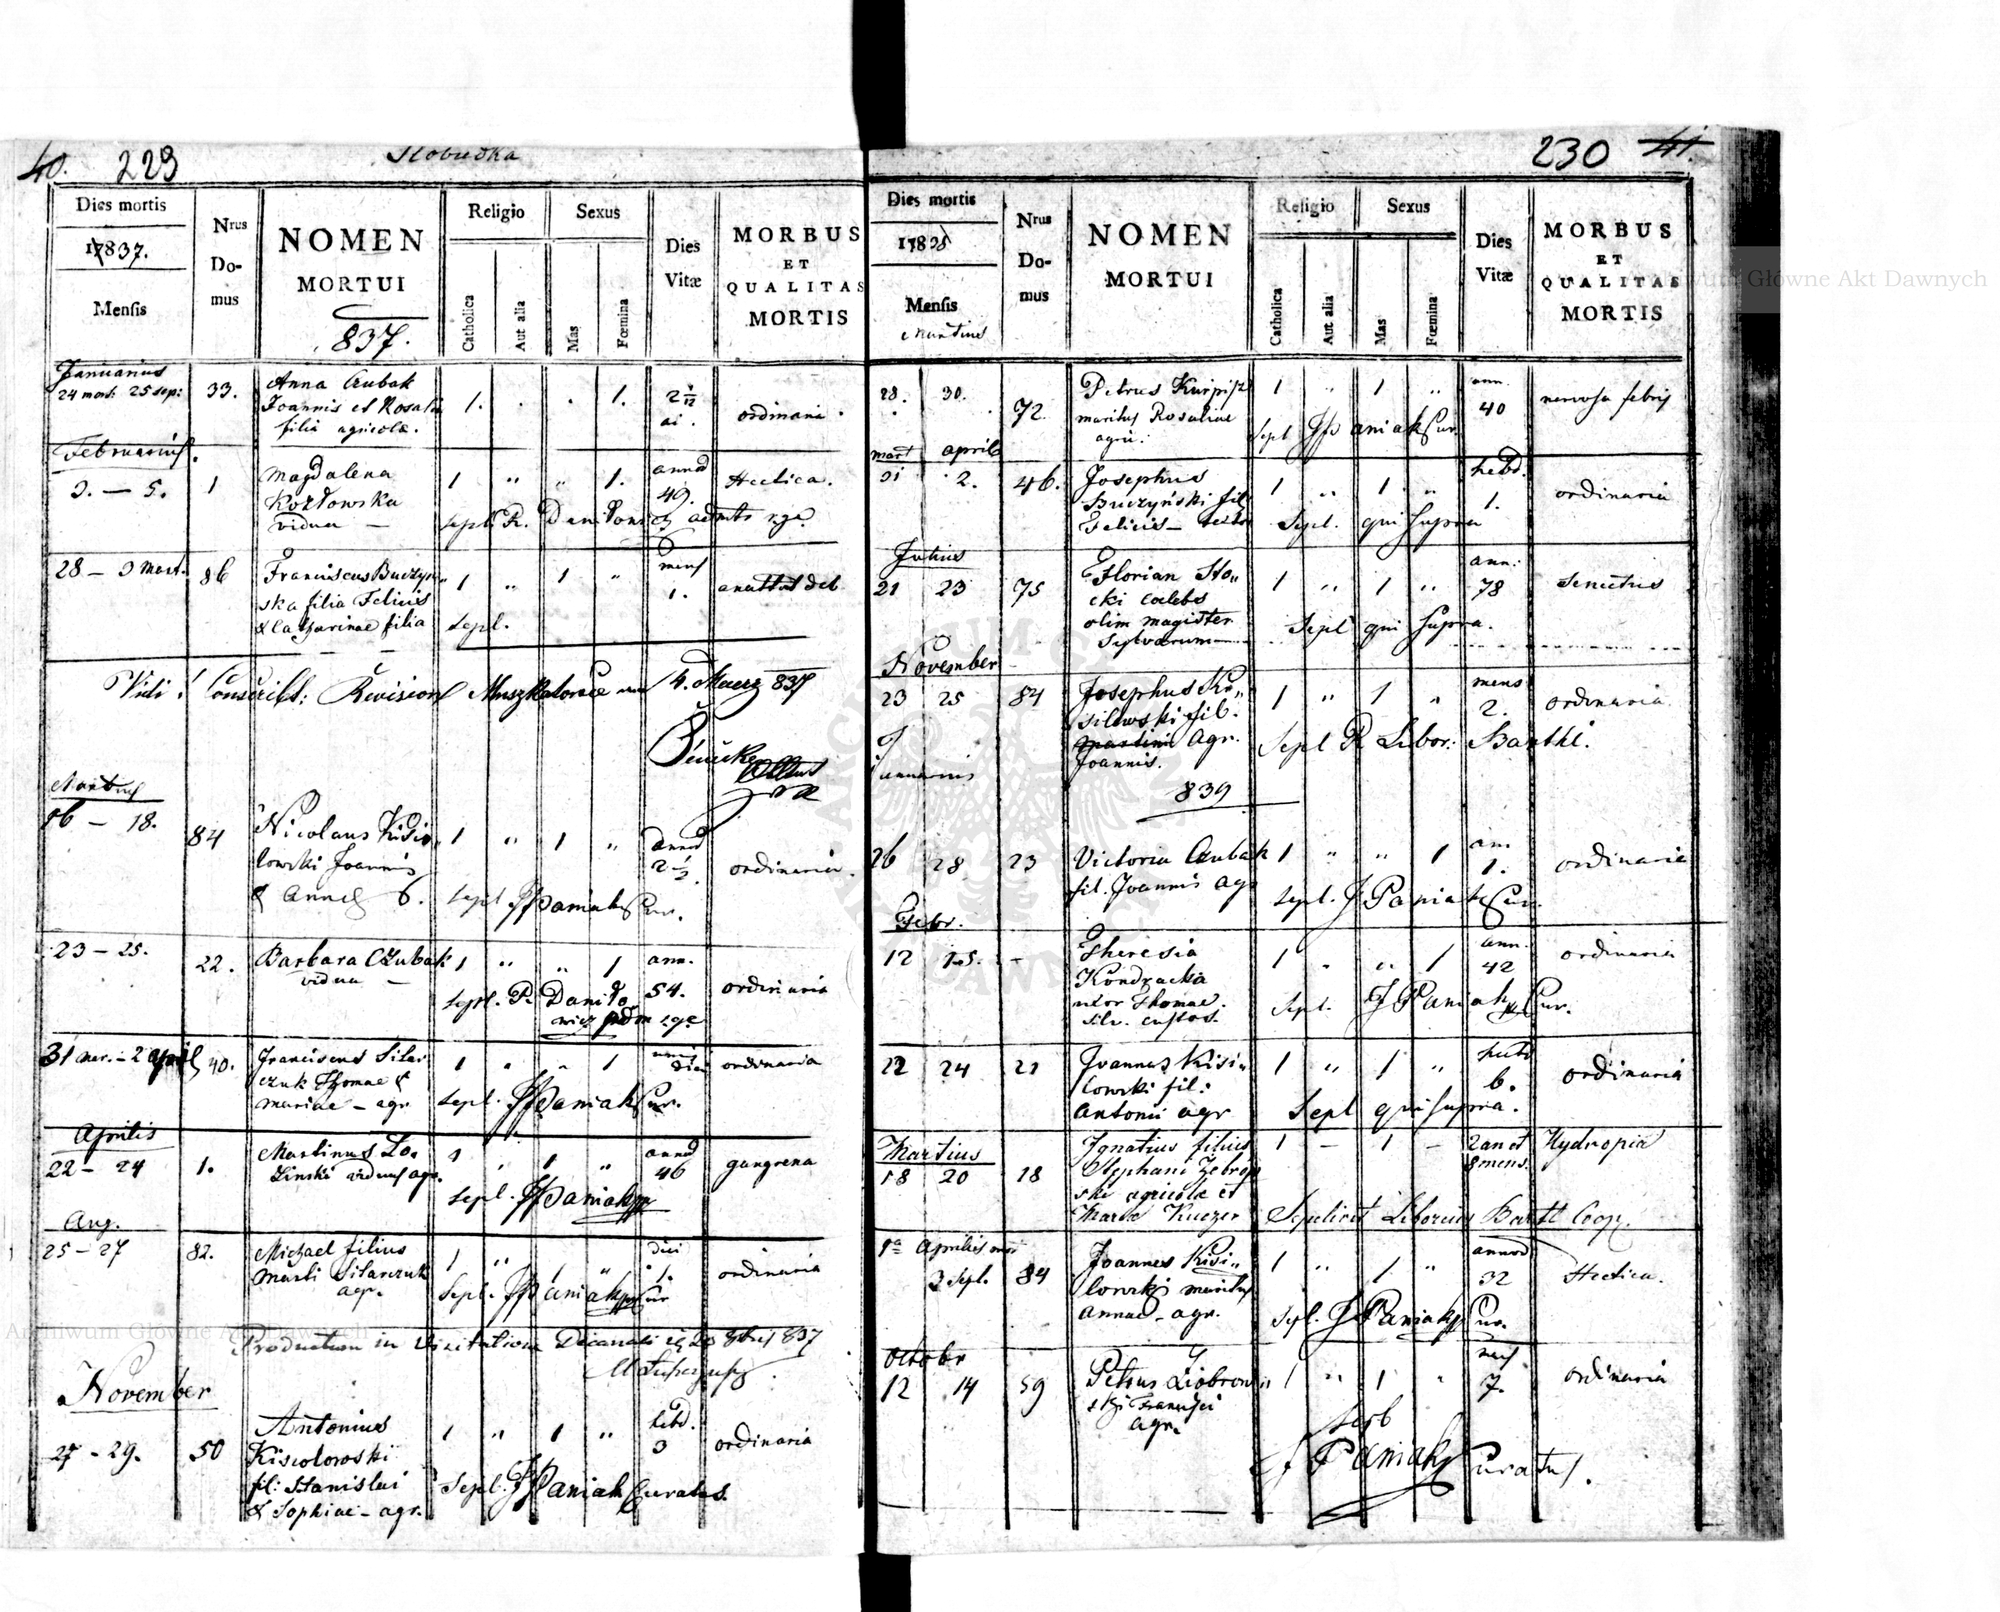 40. 229
Slobudka
Dies mortis
17837.
Mensis
Nrus
Do-
mus
NOMEN
MORTUI
837.
Religio
Catholica
Aut alia
Sexus
Mas
Fœmina
Dies
Vitæ
MORBUS
ET
QUALITAS
MORTIS
Januarius
24 mort: 25 sep: 33. Anna Czubak 1. . . 1. 2 1/12 ai. ordinaria.
Joannis et Rosalia
filia agricolæ.
Februarius.
3. — 5. 1 Magdalena 1 " " 1. annor 49. Hectica.
Kozłowska
vidua —
sepl. P. Daniłowicz admtr rgę
28 — 3 Mart. 86 Franciscus Buczyn" 1 " 1 " mens 1.
ska filia Felicis
& Catharinae filia sepl.
Vidi! Conscribt: Revision Muszkatowce am 4. Maerz 837
Martius
16 — 18. 84 Nicolaus Kisie" 1 " 1 " annor 2 1/2. ordinaria.
lowski Joannis
& Annæ 6. sepl. JPaniak Cur.
23 — 25. 22. Barbara Czubak 1 " " 1 ann. 54. ordinaria
vidua —
sepl. P. Daniło
wicz adm rgę
31 mar. — 2 April 40. Franciscus Silar 1 " " 1 unius diei ordinaria
czuk Thomae &
Mariae — agr. sepl. JPaniak Cur.
Aprilis
22 — 24 1. Martinus Lo. 1 " 1 " annor 46 gangrena
zinski viduus agr.
sepl. JPaniak
Aug.
25 — 27 82. Michael filius 1 " 1 " diei 1. ordinaria
Marti Silarczuk
agr. Sepl. JPaniak Cur
Productum in Visitatione Decanali 837
November
27 — 29. 50 Antonius 1 " 1 " hebd. 3 ordinaria
Kisielowski
fil: Stanislai
& Sophiae — agr. Sepl. JPaniak Curatus.
230 41.
Dies mortis
17838
Mensis
Martius
Nrus
Do-
mus
NOMEN
MORTUI
Religio
Catholica
Aut alia
Sexus
Mas
Fœmina
Dies
Vitæ
MORBUS
ET
QUALITAS
MORTIS
28. 30. 72. Petrus Kurpisz 1 " 1 " ann. 40 nervosa febris
maritus Rosaliae
agri: Sepl JPaniak Cur.
mart april
31 2. 46. Josephus 1 " 1 " hebd. 1. ordinaria
Buczyński fil
Felicis — Sepl. qui supra
Julius
21 23 75 Florian Sto" 1 " 1 " ann: 78 Senectus
cki caelebs
olim magister
Sylvarum — Sepl qui supra.
November
23 25 84 Josephus Ki" 1 " 1 " mens 2. ordinaria
silowski fil.
Martini Agr. Sepl P. Libor: Barthl.
Joannis.
Januarius
839
26 28 23 Victoria Czubak 1 " " 1 ann 1. ordinaria
fil. Joannis agr sepl. J Paniak Cur.
Febr.
12 15. - Theresia 1 " " 1 ann. 42 ordinaria
Kondracka
uxor Thomae. Sepl. J Paniak Cur.
silv. custos.
22 24 21 Joannes Kisi" 1 " 1 " hebd 6. ordinaria
lowski fil:
Antonii agr Sepl qui supra.
Martius
18 20 18 Ignatius filius 1 - 1 - 2 an et 8 mens. Hydropia
Stephani Zebrow
ski agricolæ et
Mariæ Kuczer Sepelivit Liborius Barthl Coop.
1a Aprilis mor
3 Sepl. 84 Joannes Kisi" 1 " 1 " annor 32 Hectica.
lowski maritus
Annae — agr. Sepl. J Paniak Cur.
Octobr
12 14 59 Petrus Ziobrow" 1 " 1 " mens 7. ordinaria
ski Francisci
agr. sepl
J Paniak Curatus.
Archiwum Główne Akt Dawnych